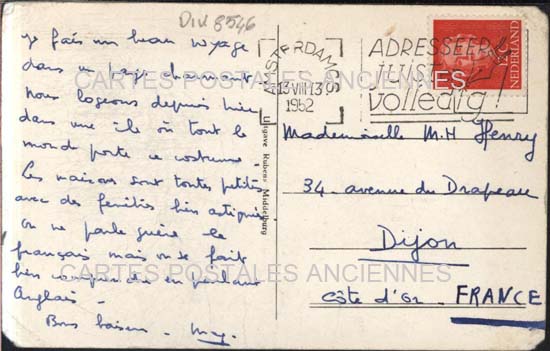 Div 8546
Je fais un beau voyage
dans un pays charmant
Nous logeons depuis hier
dans une île où tout le
monde porte ce costume.
Les maisons sont toutes petites
avec des fenêtres bien astiquées
On ne parle guère le
français mais on se fait
bien comprendre en parlant
Anglais -
Bons baisers -
Uitgave Rubens-Middelburg
AMSTERDAM
13.VIII.13
1952
ADRESSEER
JUIST
volledig!
NEDERLAND
Mademoiselle M.H Henry
34 - avenue du Drapeau
Dijon
Côte d'Or - FRANCE
CARTES POSTALES ANCIENNES
CARTES POSTALES ANCIENNES